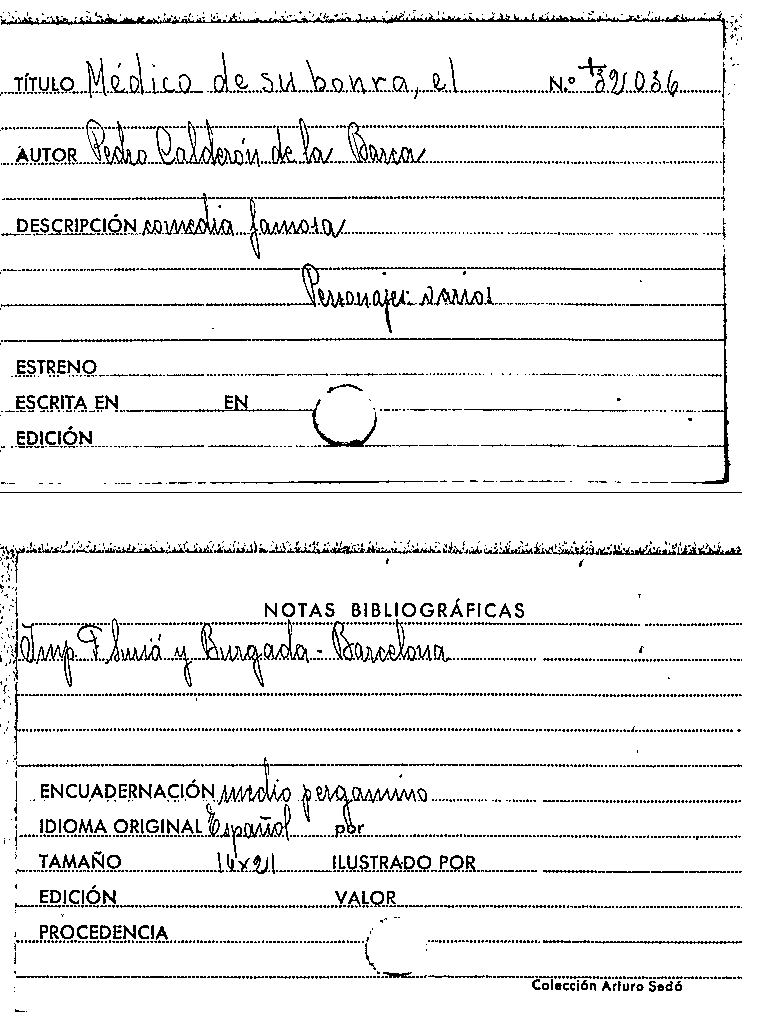 TÍTULO Médico de su honra, el N.º +32036
AUTOR Pedro Calderón de la Barca
DESCRIPCIÓN comedia famosa
Personajes: varios
ESTRENO
ESCRITA EN EN
EDICIÓN
NOTAS BIBLIOGRÁFICAS
Imp. F. Suriá y Burgada - Barcelona
ENCUADERNACIÓN medio pergamino
IDIOMA ORIGINAL Español por
TAMAÑO ILUSTRADO POR
EDICIÓN VALOR
PROCEDENCIA
Colección Arturo Sedó